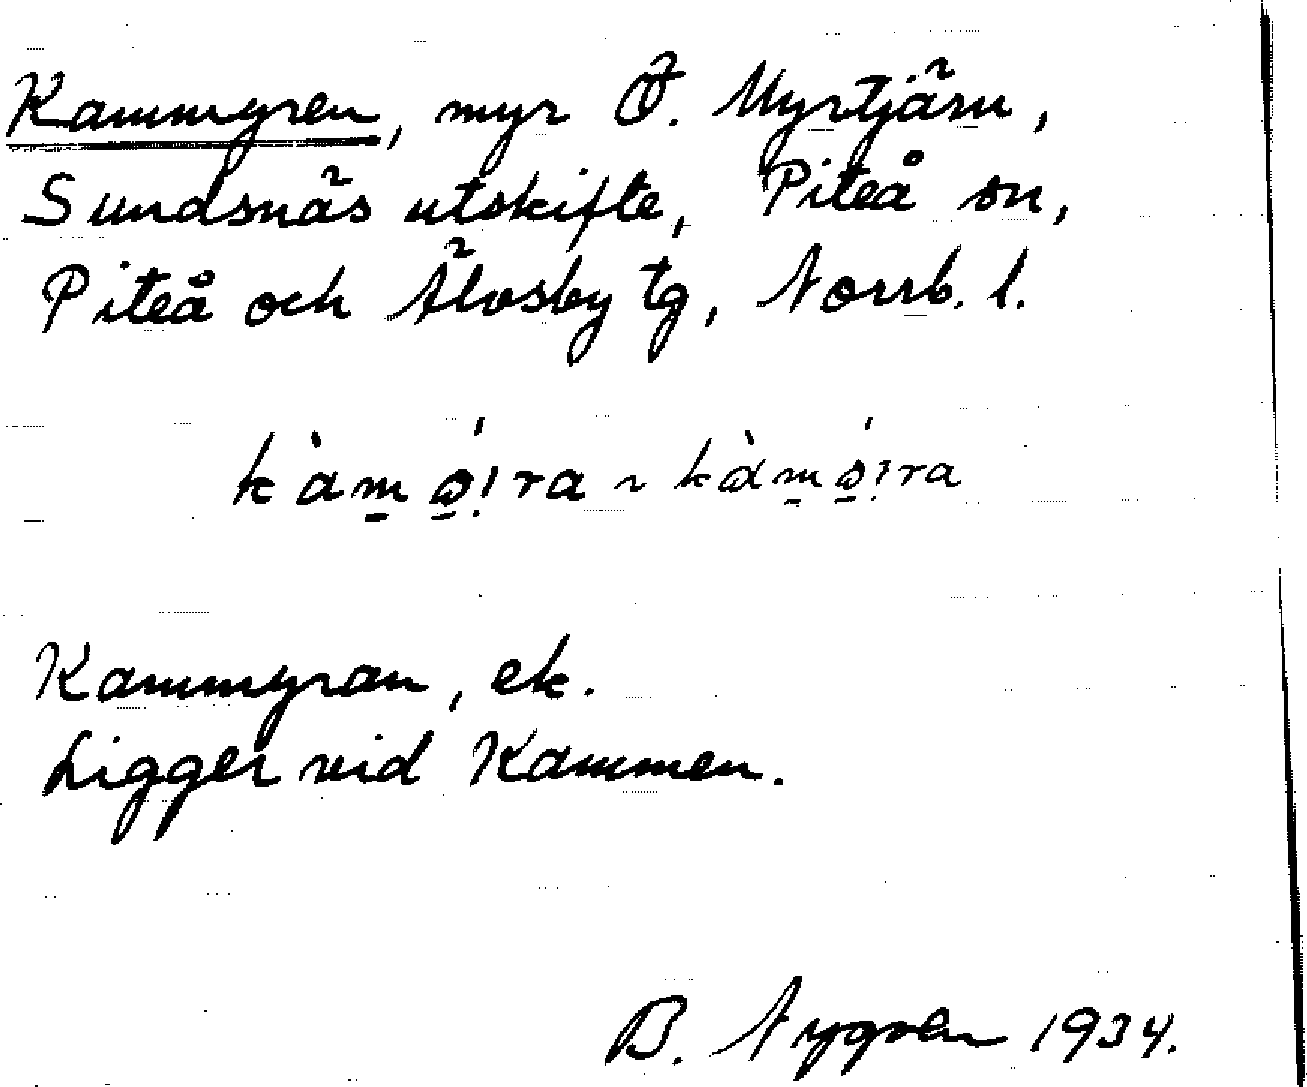 Kammyren, myr Ö. Myrtjärn,
Sundsnäs utskifte, Piteå sn,
Piteå och Älvsby tg, Norrb. l.
Kammyran, ek.
Ligger vid Kammen.
B. Nygren 1934.